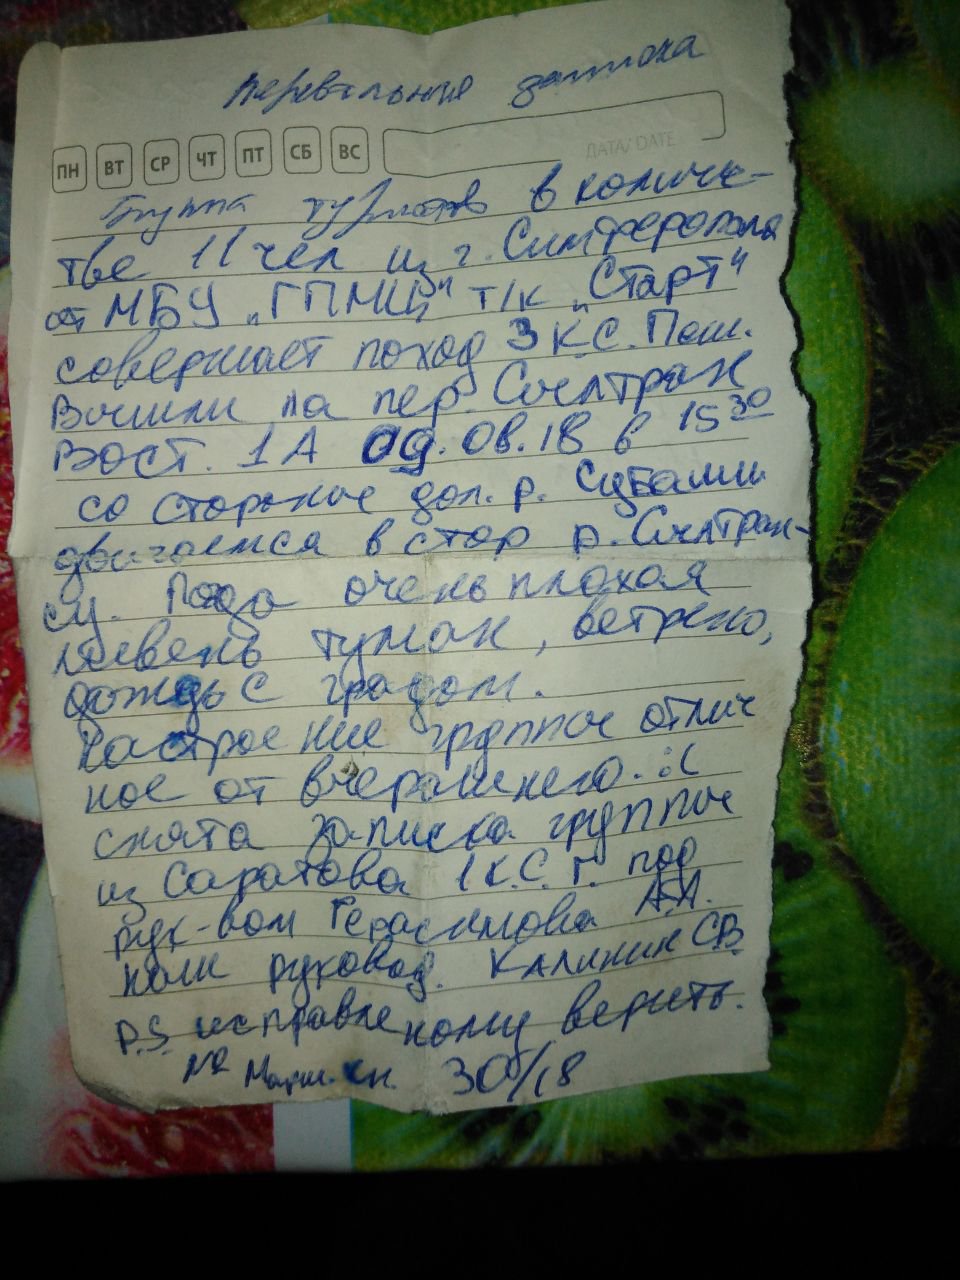 Перевальная записка
ПН ВТ СР ЧТ ПТ СБ ВС
ДАТА/ DATE
Группа туристов в количе-
тве 11 чел из г. Симферополя
от МБУ "ГПМЦ" т/к "Старт"
совершает поход 3 К.С. Пеш.
Вышли на пер. Сылтран
Вост. 1А 09.08.18 в 15 30
со стороны дол. р. Субаши
двигаемся в стор р. Сылтран-
су. Погода очень плохая
ливень туман, ветрено,
дождь с градом.
Настроение группы отлич
ное от вчерашнего. :(
снята записка группы
из Саратова 1 К.С. Г. под
рук-вом Герасимова А.А.
наш руковод. Калинин СВ
P.S. исправленому верить.
№ Марш. кн. 30/18